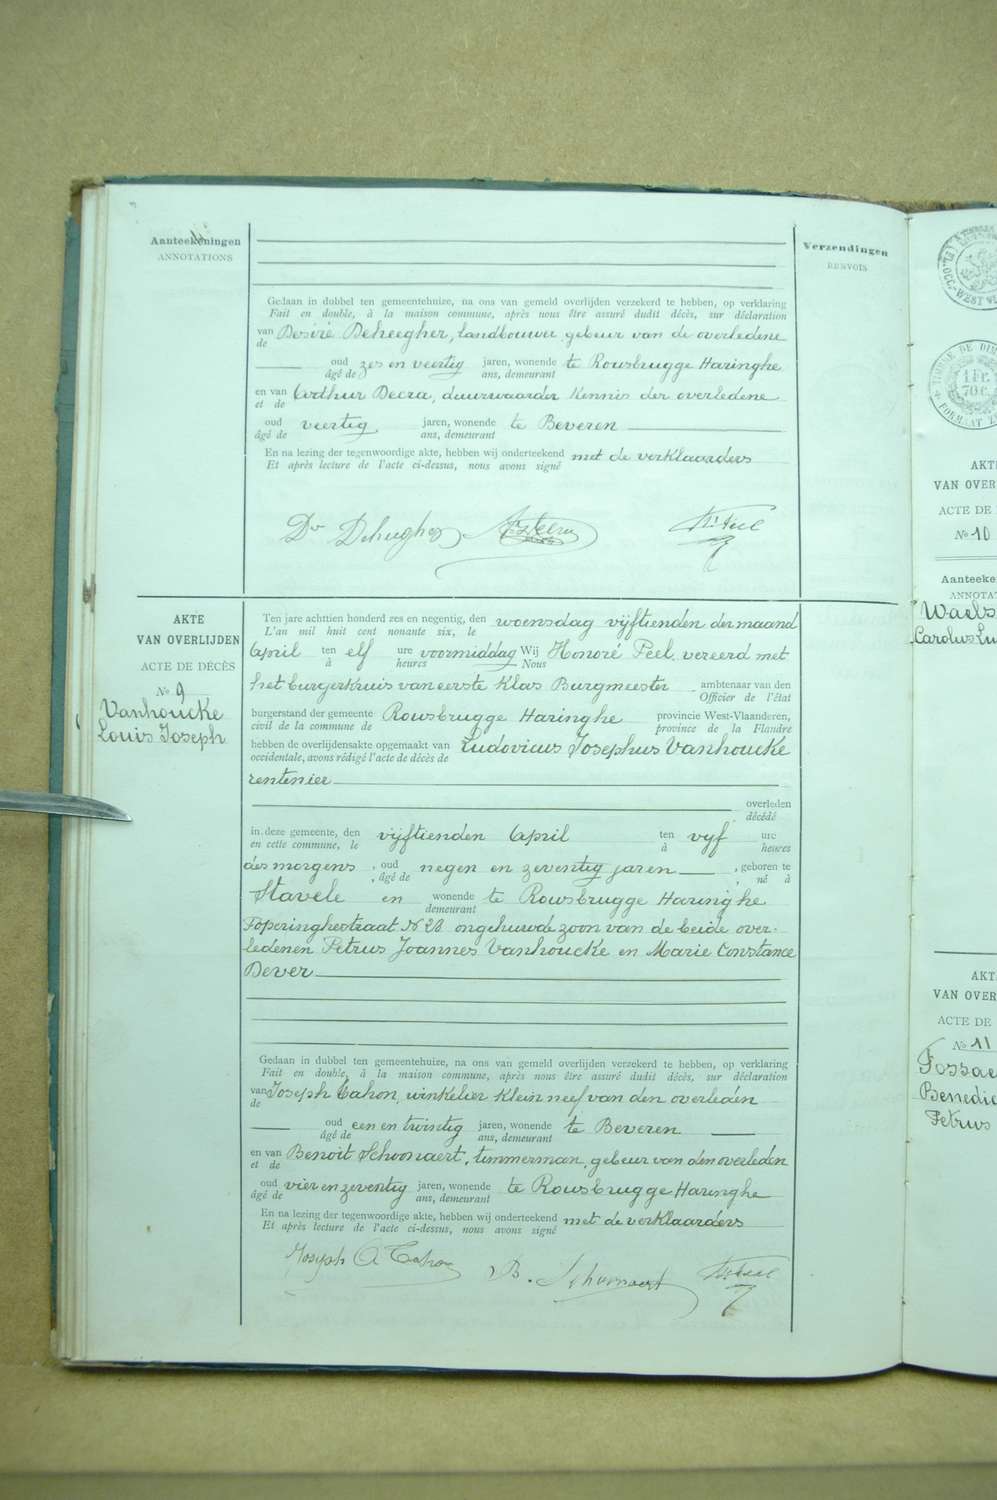 Aanteekeningen
ANNOTATIONS
Verzendingen
RENVOIS
Gedaan in dubbel ten gemeentehuize, na ons van gemeld overlijden verzekerd te hebben, op verklaring
Fait en double, à la maison commune, après nous être assuré dudit décès, sur déclaration
van de Desiré Deheegher, landbouwer, gebuur van de overledene
oud âgé de zes en veertig jaren, wonende ans, demeurant te Rousbrugge Haringhe
en van et de Arthur Decra, duurwaarder Kennis der overledene
oud âgé de veertig jaren, wonende ans, demeurant te Beveren
En na lezing der tegenwoordige akte, hebben wij onderteekend met de verklaarders
Et après lecture de l'acte ci-dessus, nous avons signé
AKTE
VAN OVERLIJDEN
ACTE DE DÉCÈS
No 9
Vanhoucke
Louis Joseph
Ten jare achttien honderd zes en negentig, den woensdag vijftienden der maand
L'an mil huit cent nonante six, le
April ten à elf ure heures voormiddag Wij Nous Honoré Peel, vereerd met
het burgerkruis van eerste Klas Burgmeester ambtenaar van den
Officier de l'état
burgerstand der gemeente Rousbrugge Haringhe provincie West-Vlaanderen,
civil de la commune de province de la Flandre
hebben de overlijdensakte opgemaakt van Ludovicus Josephus Vanhoucke
occidentale, avons rédigé l'acte de décès de
rentenier
overleden
décédé
in deze gemeente, den vijftienden April ten vyf ure
en cette commune, le à heures
des morgens, oud âgé de negen en zeventig jaren, geboren te né à
Stavele en wonende demeurant te Rousbrugge Haringhe
Poperinghestraat N 28 ongehuwde zoon van de beide over-
ledenen Petrus Joannes Vanhoucke en Marie Constance
Dever
Gedaan in dubbel ten gemeentehuize, na ons van gemeld overlijden verzekerd te hebben, op verklaring
Fait en double, à la maison commune, après nous être assuré dudit décès, sur déclaration
van de Joseph Cahon, winkelier Klein neef van den overleden
oud âgé de een en twintig jaren, wonende ans, demeurant te Beveren
en van et de Benoit Schoonaert, timmerman, gebuur van den overleden
oud âgé de vier en zeventig jaren, wonende ans, demeurant te Rousbrugge Haringhe
En na lezing der tegenwoordige akte, hebben wij onderteekend met de verklaarders
Et après lecture de l'acte ci-dessus, nous avons signé
Joseph A Cahon B. Schoonaert
1 Fr.
70 c.
AKT
VAN OVER
ACTE DE
No 10
Aanteeke
ANNOTAT
Waels
Carolus Lu
AKT
VAN OVER
ACTE DE
No 11
Fossae
Benedic
Petrus